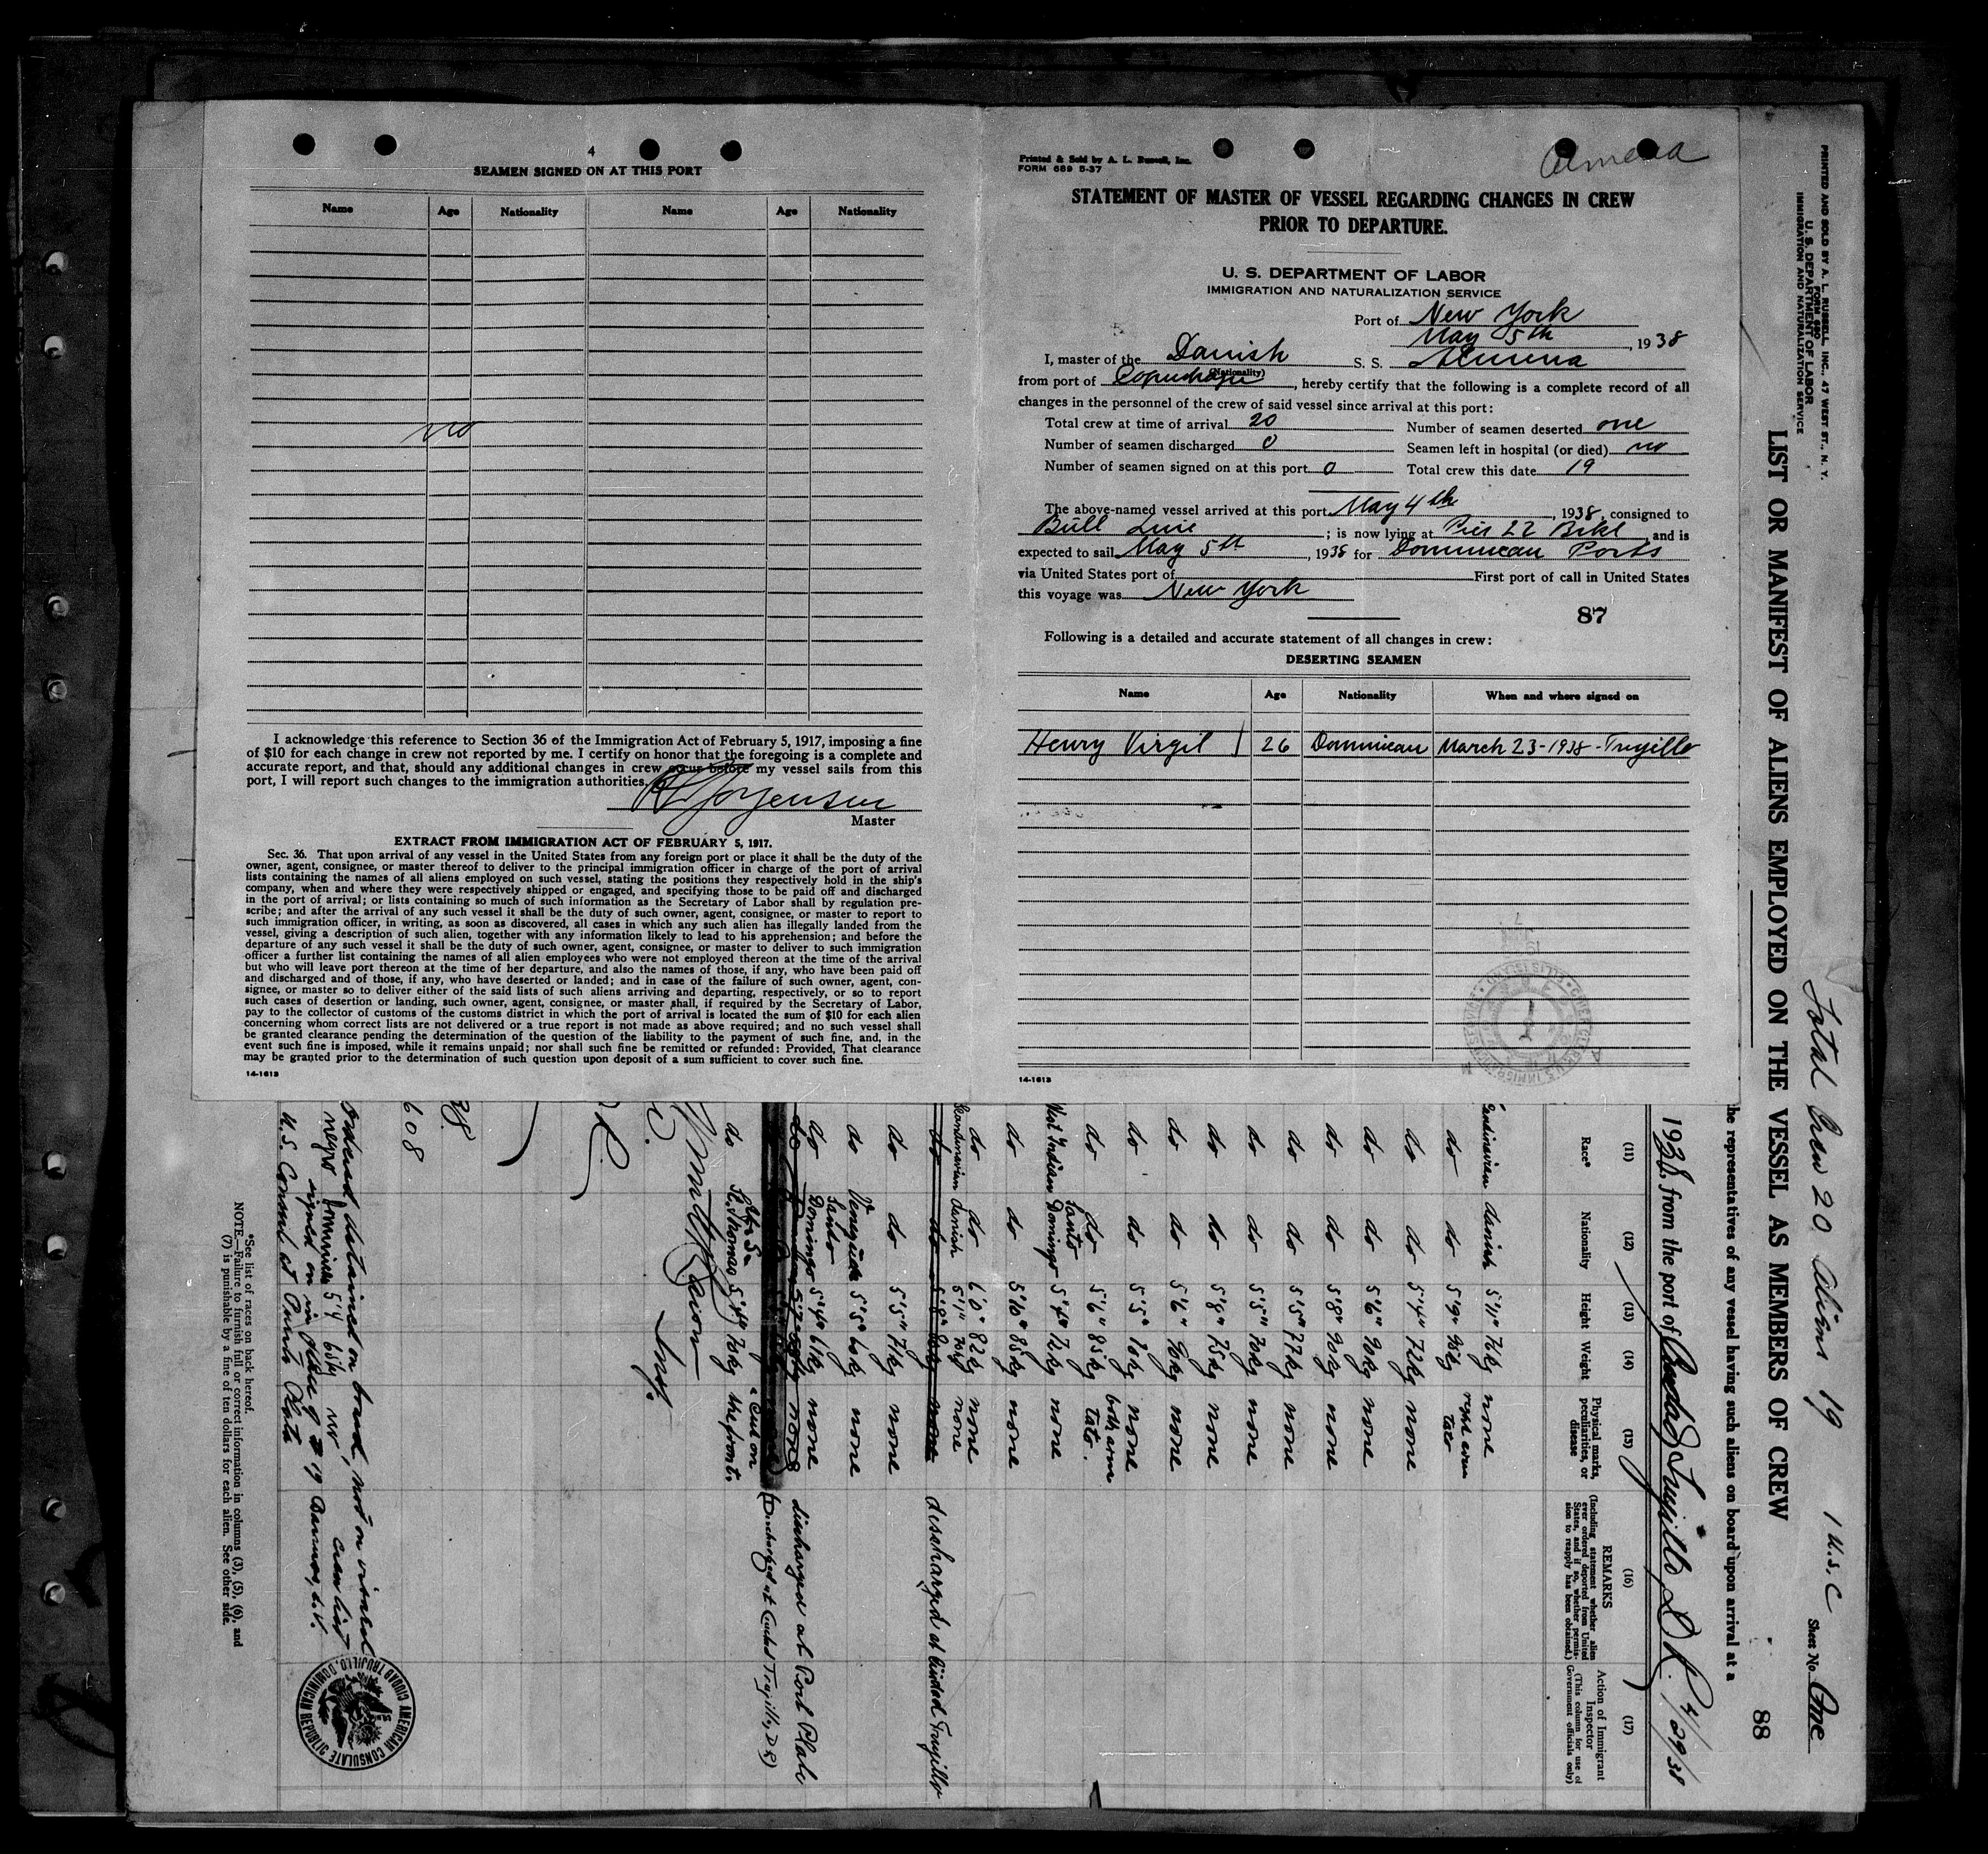 4
SEAMEN SIGNED ON AT THIS PORT
Name Age Nationality Name Age Nationality
no
I acknowledge this reference to Section 36 of the Immigration Act of February 5, 1917, imposing a fine
of $10 for each change in crew not reported by me. I certify on honor that the foregoing is a complete and
accurate report, and that, should any additional changes in crew occur before my vessel sails from this
port, I will report such changes to the immigration authorities.
Jorgensen
Master
EXTRACT FROM IMMIGRATION ACT OF FEBRUARY 5, 1917.
Sec. 36. That upon arrival of any vessel in the United States from any foreign port or place it shall be the duty of the
owner, agent, consignee, or master thereof to deliver to the principal immigration officer in charge of the port of arrival
lists containing the names of all aliens employed on such vessel, stating the positions they respectively hold in the ship's
company, when and where they were respectively shipped or engaged, and specifying those to be paid off and discharged
in the port of arrival; or lists containing so much of such information as the Secretary of Labor shall by regulation pre-
scribe; and after the arrival of any such vessel it shall be the duty of such owner, agent, consignee, or master to report to
such immigration officer, in writing, as soon as discovered, all cases in which any such alien has illegally landed from the
vessel, giving a description of such alien, together with any information likely to lead to his apprehension; and before the
departure of any such vessel it shall be the duty of such owner, agent, consignee, or master to deliver to such immigration
officer a further list containing the names of all alien employees who were not employed thereon at the time of the arrival
but who will leave port thereon at the time of her departure, and also the names of those, if any, who have been paid off
and discharged and of those, if any, who have deserted or landed; and in case of the failure of such owner, agent, con-
signee, or master so to deliver either of the said lists of such aliens arriving and departing, respectively, or so to report
such cases of desertion or landing, such owner, agent, consignee, or master shall, if required by the Secretary of Labor,
pay to the collector of customs of the customs district in which the port of arrival is located the sum of $10 for each alien
concerning whom correct lists are not delivered or a true report is not made as above required; and no such vessel shall
be granted clearance pending the determination of the question of the liability to the payment of such fine, and, in the
event such fine is imposed, while it remains unpaid; nor shall such fine be remitted or refunded: Provided, That clearance
may be granted prior to the determination of such question upon deposit of a sum sufficient to cover such fine.
14-1613
Printed & Sold by A. L. Russell, Inc.
FORM 689 5-37
STATEMENT OF MASTER OF VESSEL REGARDING CHANGES IN CREW
PRIOR TO DEPARTURE.
U. S. DEPARTMENT OF LABOR
IMMIGRATION AND NATURALIZATION SERVICE
Port of New York
May 5th, 1938
I, master of the Danish S. S. Almena
(Nationality)
from port of Copenhagen, hereby certify that the following is a complete record of all
changes in the personnel of the crew of said vessel since arrival at this port:
Total crew at time of arrival 20 Number of seamen deserted one
Number of seamen discharged 0 Seamen left in hospital (or died) no
Number of seamen signed on at this port 0 Total crew this date 19
The above-named vessel arrived at this port May 4th, 1938, consigned to
Bull Line; is now lying at Pier 22 Bkl, and is
expected to sail May 5th, 1938 for Dominican Ports
via United States port of First port of call in United States
this voyage was New York
87
Following is a detailed and accurate statement of all changes in crew:
DESERTING SEAMEN
Name Age Nationality When and where signed on
Henry Virgil 26 Dominican March 23-1938 - Trujillo
14-1613
PRINTED AND SOLD BY A. L. RUSSELL, INC., 47 WEST ST., N. Y.
FORM 680
U. S. DEPARTMENT OF LABOR
IMMIGRATION AND NATURALIZATION SERVICE
Total Crew 20 Aliens 19 1 U.S.C
Sheet No. One
LIST OR MANIFEST OF ALIENS EMPLOYED ON THE VESSEL AS MEMBERS OF CREW
88
the representatives of any vessel having such aliens on board upon arrival at a
1938, from the port of Ciudad Trujillo D R. 4/29/38
(11) (12) (13) (14) (15) (16) (17)
Race* Nationality Height Weight Physical marks, peculiarities, or disease
REMARKS
(Including statement whether alien ever ordered deported from United States, and if so, whether permission to reapply has been obtained.)
Action of Immigrant Inspector
(This column for use of Government officials only)
Scandinavian danish 5'11" 76kg none
do do 5'9" 95kg right arm tato
do do 5'4" 72kg none
do do 5'6" 90kg none
do do 5'8" 90kg none
do do 5'5" 77kg none
do do 5'5" 70kg none
do do 5'8" 75kg none
do do 5'6" 90kg none
do do 5'5" 86kg none
do do 5'6" 85kg both arm tato.
West Indian Santo Domingo 5'4" 72kg none
do do 5'10" 85kg none
do do 6'0" 82kg none
Scandinavian danish 5'11" 70kg none
do do 5'8" none descharged at Ciudad Trujillo
do do 5'5" 71kg none
do Venezuela 5'5" 60kg none
do Santo Domingo 5'4" 61kg none
discharged at Port Plate
(Discharged at Ciudad Trujillo, D R)
do St. Thomas 5'4" 70kg a cut on the front.
Insp.
38.
608
Ordered detained on board, not on visaed crew list
negro Dominican 5'4 65kg no
signed on in place of # 19
U.S. Consul at Puerto Plata
*See list of races on back hereof.
NOTE.—Failure to furnish full or correct information in columns (3), (5), (6), and
(7) is punishable by a fine of ten dollars for each alien. See other side.
AMERICAN CONSULATE
CIUDAD TRUJILLO, DOMINICAN REPUBLIC